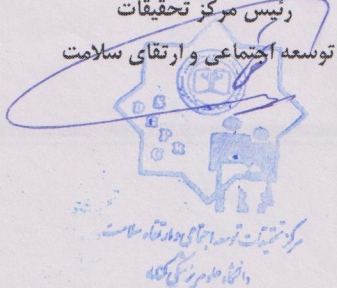 رئیس مرکز تحقیقات
توسعه اجتماعی و ارتقای سلامت
S D
H P
R C
مرکز تحقیقات توسعه اجتماعی و ارتقاء سلامت
دانشگاه علوم پزشکی